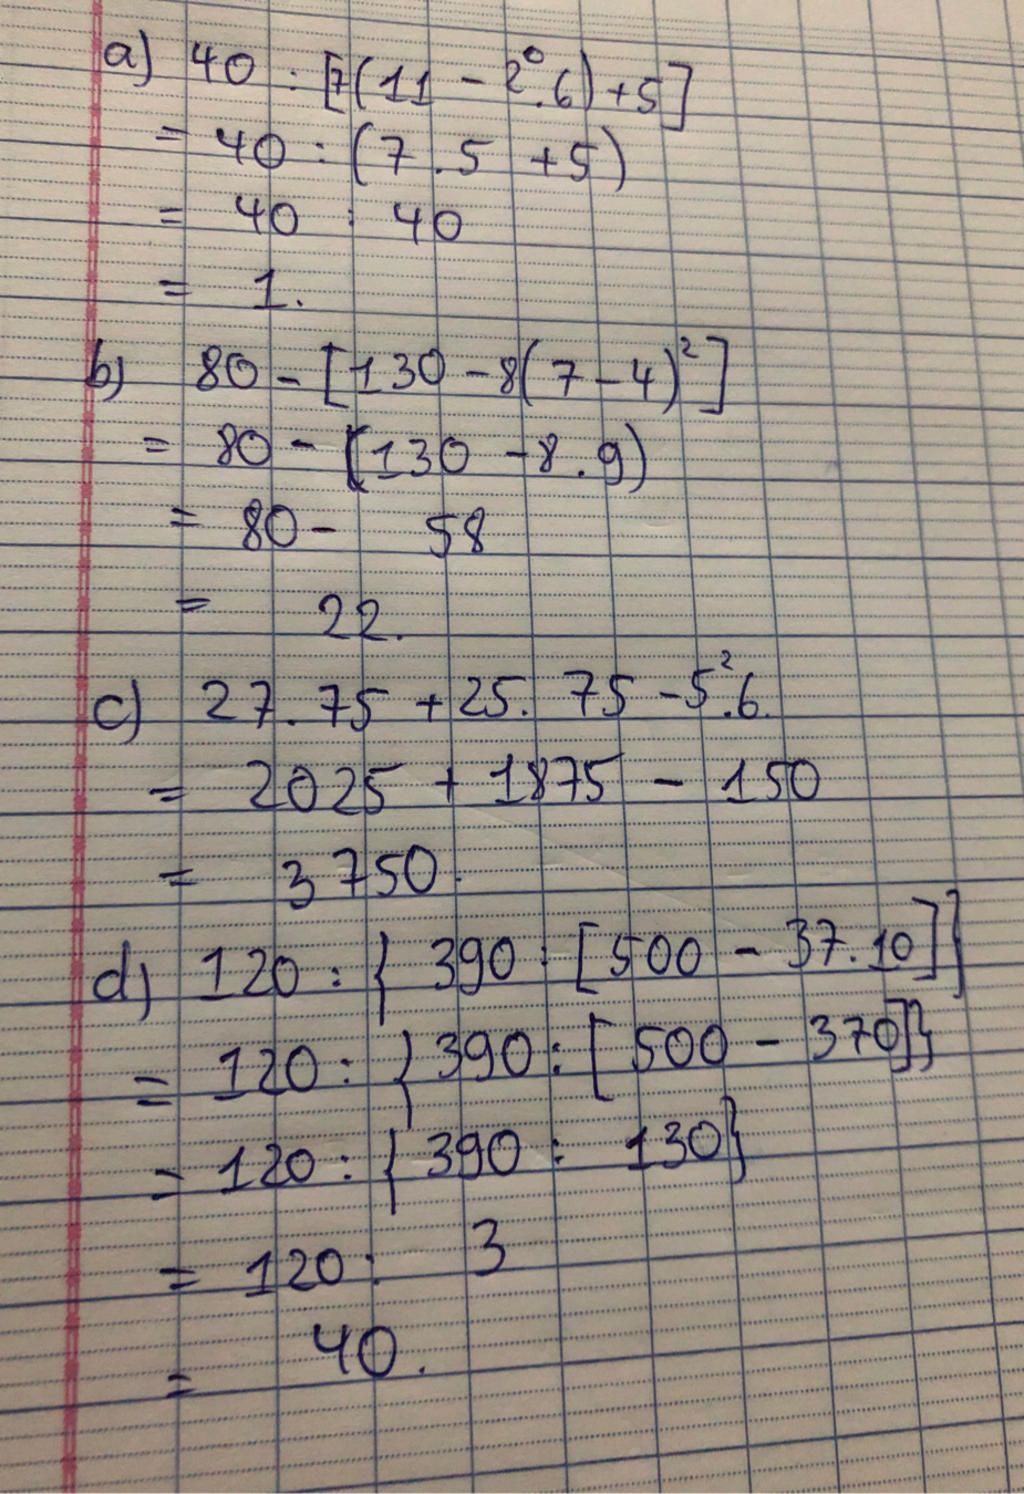 a) 40 : [7(11 - 2⁰.6) + 5]
= 40 : (7.5 + 5)
= 40 : 40
= 1.
b) 80 - [130 - 8(7 - 4)²]
= 80 - (130 - 8.9)
= 80 - 58
= 22.
c) 27.75 + 25.75 - 5².6.
= 2025 + 1875 - 150
= 3750.
d) 120 : { 390 : [500 - 37.10]}
= 120 : { 390 : [500 - 370]}
= 120 : { 390 : 130}
= 120 : 3
= 40.